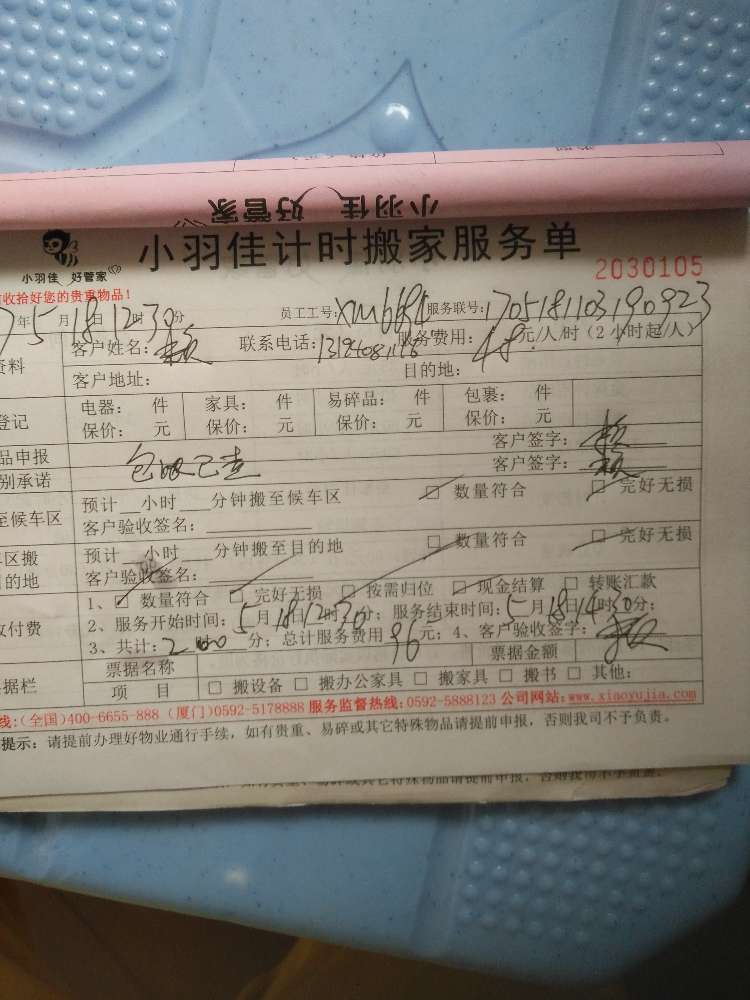 小羽佳 好管家
小羽佳计时搬家服务单
小羽佳 好管家
2030105
收拾好您的贵重物品！
7年5月18日12时30分 员工工号： 服务联号：1705181103190923
资料 客户姓名： 联系电话： 服务费用：48元/人/时（2小时起/人）
客户地址： 目的地：
登记 电器： 件 家具： 件 易碎品： 件 包裹： 件
保价： 元 保价： 元 保价： 元 保价： 元
品申报 客户签字：
别承诺 客户签字：
至候车区 预计__小时___分钟搬至候车区 □ 数量符合 □ 完好无损
客户验收签名：
区搬 预计__小时___分钟搬至目的地 □ 数量符合 □ 完好无损
的地 客户验收签名：
付费 1、□ 数量符合 □ 完好无损 □ 按需归位 □ 现金结算 □ 转账汇款
2、服务开始时间：5月18日12时30分；服务结束时间：5月18日14时30分；
3、共计：2时00分；总计服务费用96元；4、客户验收签字：
据栏 票据名称 票据金额
项 目 □ 搬设备 □ 搬办公家具 □ 搬家具 □ 搬书 □ 其他：
线：(全国)400-6655-888 (厦门)0592-5178888 服务监督热线：0592-5888123 公司网站：www.xiaoyujia.com
提示：请提前办理好物业通行手续，如有贵重、易碎或其它特殊物品请提前申报，否则我司不予负责。